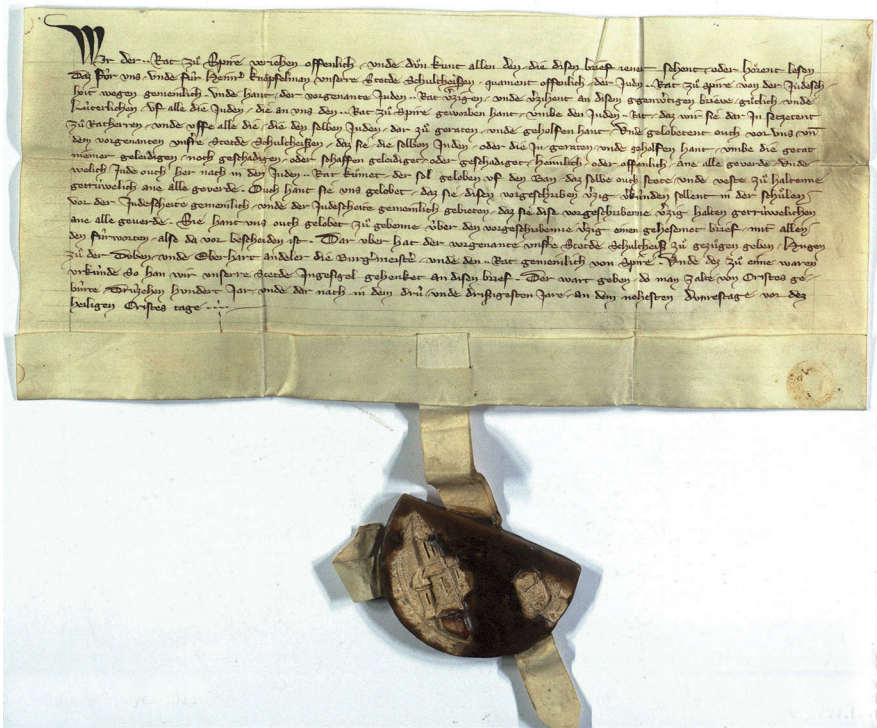 Wir der ·· Rat zů Spire veriehen offenlich · unde důn kunt allen den die disen brief iemer sehent · oder hoͤrent lesen
Daz foͤr uns · unde fůr Heinr̄ Knoͤpfelman unserre Stede Schultheißen · quament offenlich · der Juden ·· Rat zů Spire von der Judesch
heit wegen gemeinlich · unde hant · der vorgenante Juden ·· Rat v̂zigen · unde v̂zihent an disem ggenwoͤtigen brieve · gůtlich unde
Luterlichen · uf alle die Juden · die an uns den ·· Rat zů Spire geworben hant · umbe den Juden ·· Rat · daz wir sie dar In setzetent
zů Ratherren · unde uffe alle die · die den selben Juden · dar zů geraten · unde geholfen hant · Unde gelobetent ouch vor uns un̄
dem vorgenanten unsre Stede Schultheißen · daz sie die selben Juden · oder die In geraten · unde geholfen hant · umbe die getat
niemer geleidigen · noch geschadigen · oder schaffen geleidiget · oder geschadiget · heimlich · oder offenlich · ane alle geverde · Unde
welich Jude ouch her nach in den Juden ·· Rat kůmet · der sol geloben uf den Ban · daz selbe ouch stete · unde veste zů haltenne
getrůwelich ane alle geverde · Ouch hant sie uns gelobet · daz sie disen vorgeschriben v̂zig v̂kůnden sollent in der schůlen
vor der Judescheite gemeinlich · unde der Judescheite gemeinlich gebieten · daz sie dise vorgeschribenne v̂zig halten getrůwelichen
ane alle geverde · Sie hant uns ouch gelobet zů gebenne uͤber den vorgeschribenne v̂zig einen gehesenet brief · mit allen
den fůrworten · alse da vor bescheiden ist · Dar uber hat der vorgenante unsre Stede Schultheiß zů gezůgen geben · Hugen
zů der Doben · unde Eberhart andeler die Burg̓meist̓e · unde den ·· Rat gemeinlich von Spire · Unde dez zů eime waren
urkůnde So han wir unserre Stede Ingesigel gehenket an disen brief · Der wart geben · do man zalte von Cristes ge-
bůrte · Drůzehen hundert Jar · unde der nach in dem drů · unde drißigosten Jare · an dem nehesten dunrestage vor dez
heiligen Cristes tage